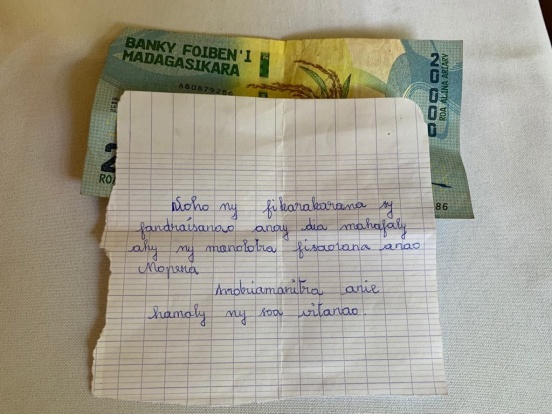 BANKY FOIBEN'I
MADAGASIKARA
A80879286
20000
ROA ALINA ARIARY
2
RO
86
Noho ny fikarakarana sy
fandraisanao anay dia mahafaly
ahy ny manolotra fisaorana anao
Mopera
Andriamanitra anie
hamaly ny soa vitanao.